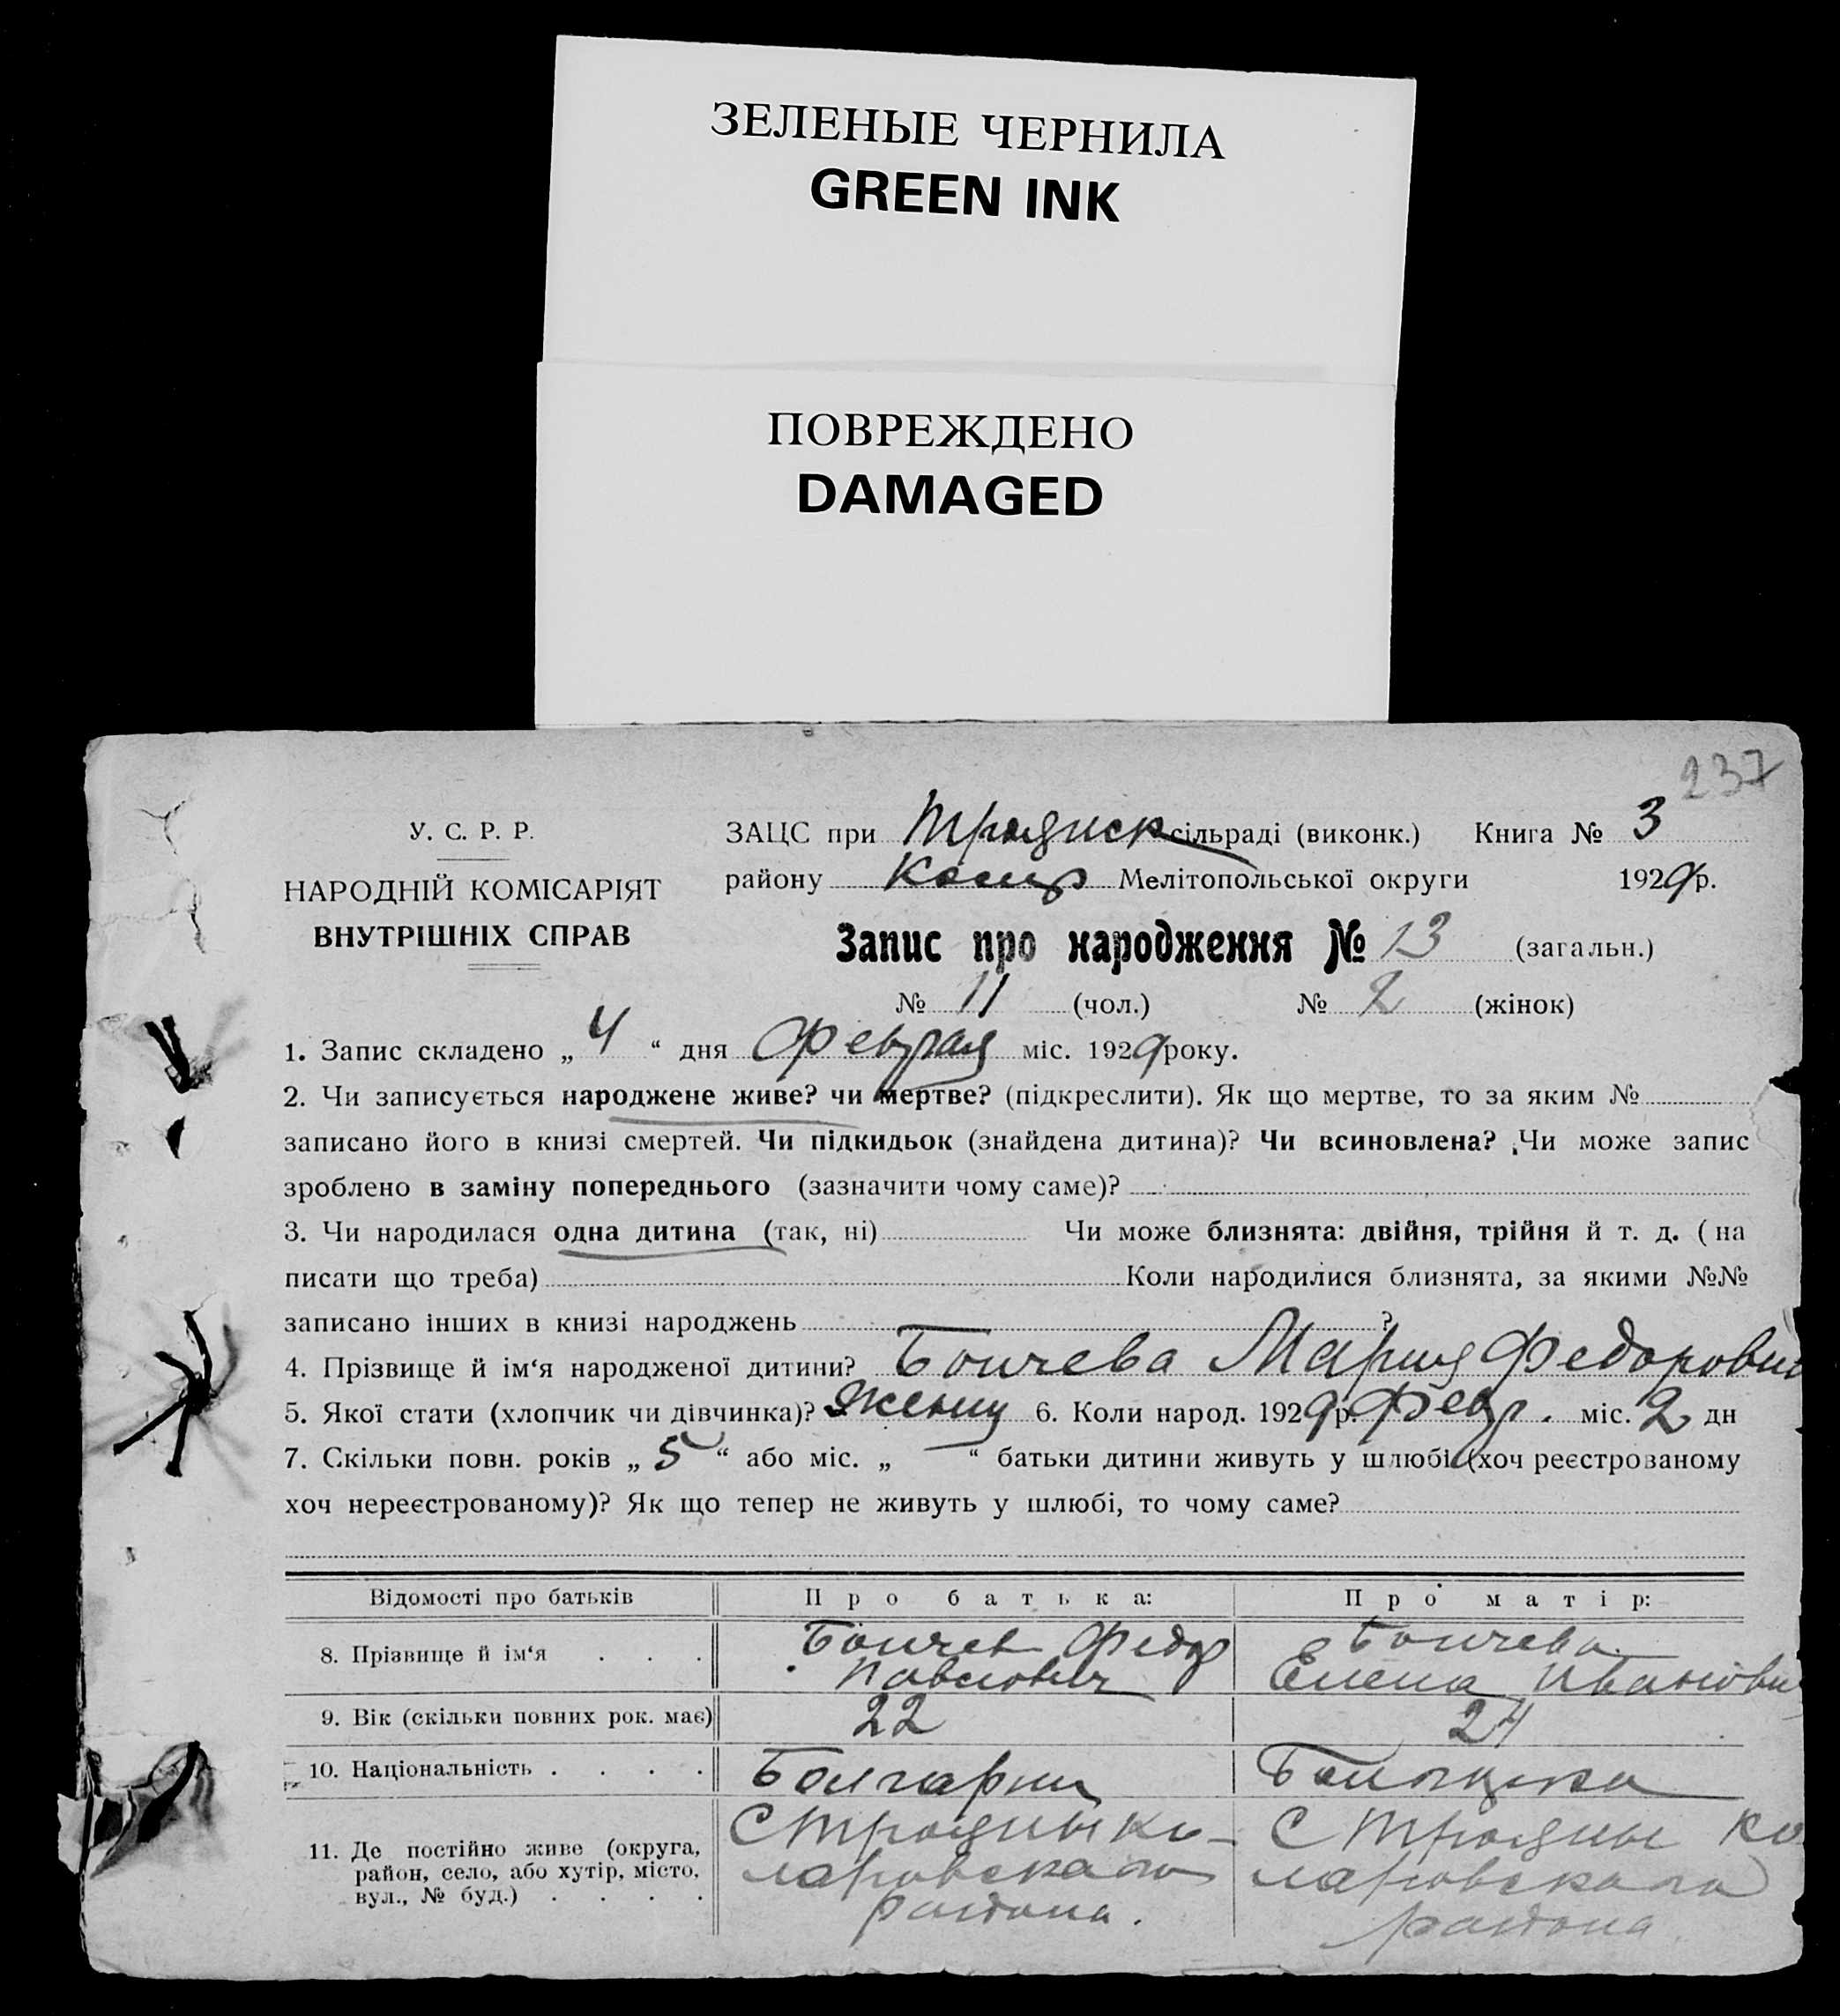 ЗЕЛЕНЫЕ ЧЕРНИЛА
GREEN INK
ПОВРЕЖДЕНО
DAMAGED
237
У. С. Р. Р.
НАРОДНІЙ КОМІСАРІЯТ
ВНУТРІШНІХ СПРАВ
ЗАЦС при Трояиск сільраді (виконк.) Книга № 3
району Коляр Мелітопольської округи 1929 р.
Запис про народження № 13 (загальн.)
№ 11 (чол.) № 2 (жінок)
1. Запис складено „ 4 “ дня Февраля міс. 1929 року.
2. Чи записується народжене живе? чи мертве? (підкреслити). Як що мертве, то за яким №
записано його в книзі смертей. Чи підкидьок (знайдена дитина)? Чи всиновлена? Чи може запис
зроблено в заміну попереднього (зазначити чому саме)?
3. Чи народилася одна дитина (так, ні) Чи може близнята: двійня, трійня й т. д. ( на
писати що треба) Коли народилися близнята, за якими №№
записано інших в книзі народжень ?
4. Прізвище й ім‘я народженої дитини? Бончева Мария Федоровн
5. Якої стати (хлопчик чи дівчинка)? 6. Коли народ. 1929 р. Февр. міс. 2 дн
7. Скільки повн. років „ 5 “ або міс. „ “ батьки дитини живуть у шлюбі (хоч реєстрованому
хоч нереєстрованому)? Як що тепер не живуть у шлюбі, то чому саме?
Відомості про батьків Про батька: Про матір:
8. Прізвище й ім‘я . . . Бончев Федор Павлович Бончева Елена Ивановн
9. Вік (скільки повних рок. має) 22 24
10. Національність . . . . Болгарин Болгарка
11. Де постійно живе (округа, район, село, або хутір, місто, вул., № буд.) . . . . С Трояны Коларовского района. С Трояны Коларовского района